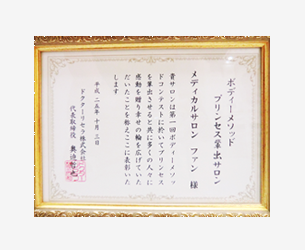 ボディーメソッド
プリンセス輩出サロン
メディカルサロン ファン 様
貴サロンは第一回ボディーメソッ
ドコンテストに於いてプリンセス
を輩出させると共に多くの人々に
感動を贈り幸せの輪を広げていた
だいたことを称えここに表彰いた
します
平成二五年十月三日
ドクターリセラ株式会社
代表取締役 奥迫哲也